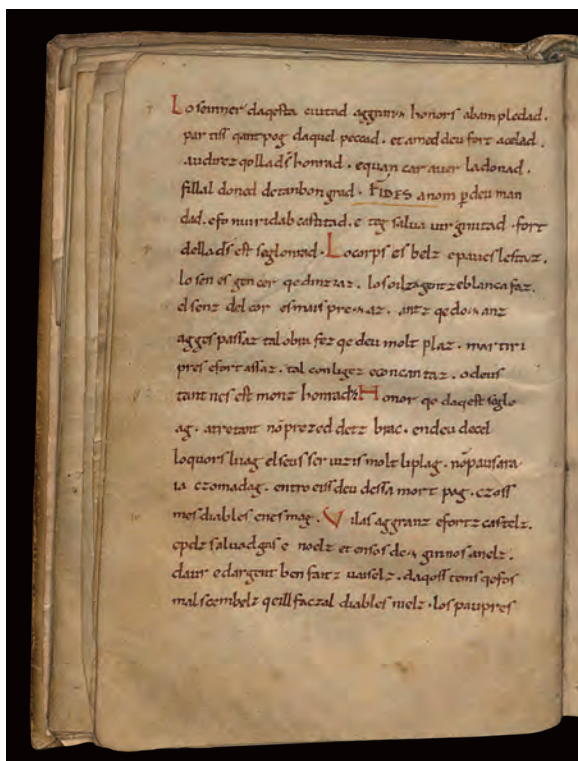 Lo seinner daqesta ciutad aggranz honors abam pledad.
par tiss qant pog daquel peccad. et amed deu fort acelad.
audirez qolla ds̄ honrad. equan car aver la donad.
fillal doned detanbon grad. FIDES anom ꝑ deu man
dad. efo nuiridab castitad. e teg salva virginitad. fort
della ds̄ est seglonrad. Lo corps es belz e paucs lestaz.
lo sen es gencor qe dinziaz. los oilz agenz e blanca faz.
el senz del cor es mais prezaz. antz qe dozanz
agges passaz tal obra fez qe deu molt plaz. martiri
pres efort assaz. tal con ligez e con cantaz. o deus
tant nes est monz honradz Honor qe daqest segle
ag. atretant nō prezed detz brac. en deu decel
lo quors livag el seus servizis molt li plag. nō pausara
ia czomadag. entro eiss deu dessa mort pag. czoss
mes diables en esmag. Vilas aggranz e fortz castelz.
e pelz salvadgas e noelz et en sos dez ginnos anelz.
daur e dargent ben faitz vaiselz. daqoss tems qe fos
mal scembelz qeill faczal diables mielz. los paupres